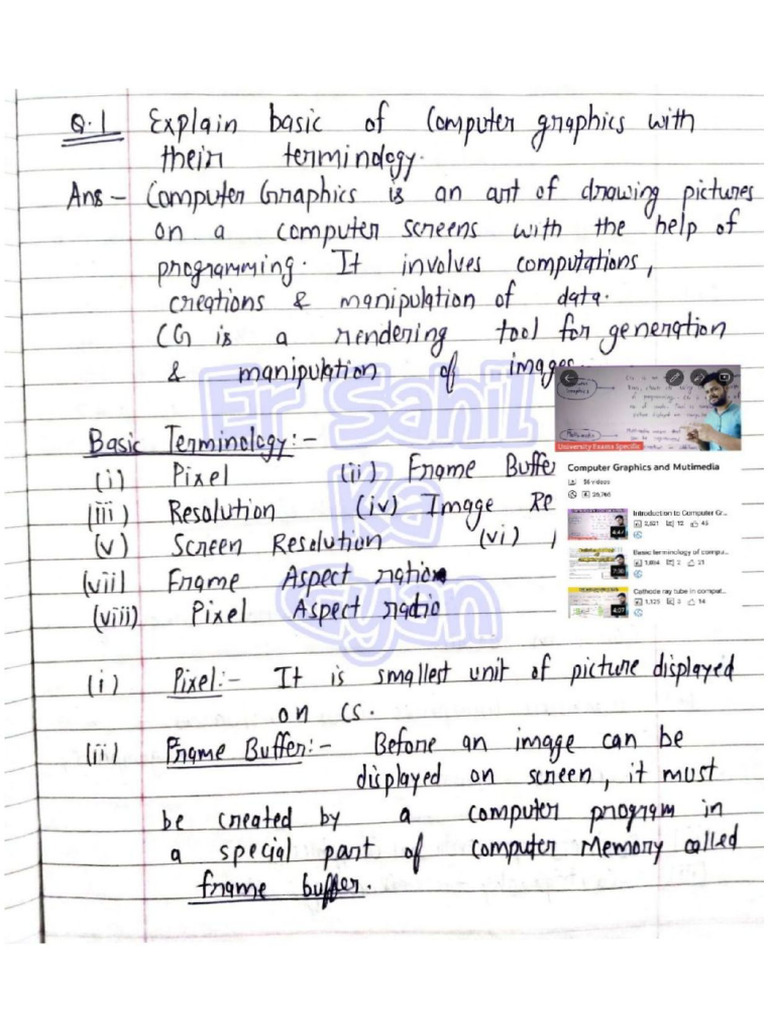 Q.1 Explain basic of Computer graphics with
their terminology.
Ans - Computer Graphics is an art of drawing pictures
on a computer screens with the help of
programming. It involves computations,
creations & manipulation of data.
CG is a rendering tool for generation
& manipulation of images
Er Sahil
Ka
Gyan
Basic Terminology:-
(i) Pixel (ii) Frame Buffer
(iii) Resolution (iv) Image Re
(v) Screen Resolution (vi)
(vii) Frame Aspect ratio
(viii) Pixel Aspect radio
University Exams Specific
Computer Graphics and Mutimedia
Introduction to Computer Gr...
2,821 12 45
Basic terminology of compu...
2 21
Cathode ray tube in comput...
1,125 3 14
4:07
(i) Pixel:- It is smallest unit of picture displayed
on CS.
(ii) Frame Buffer:- Before an image can be
displayed on screen, it must
be created by a computer program in
a special part of computer Memory called
frame buffer.